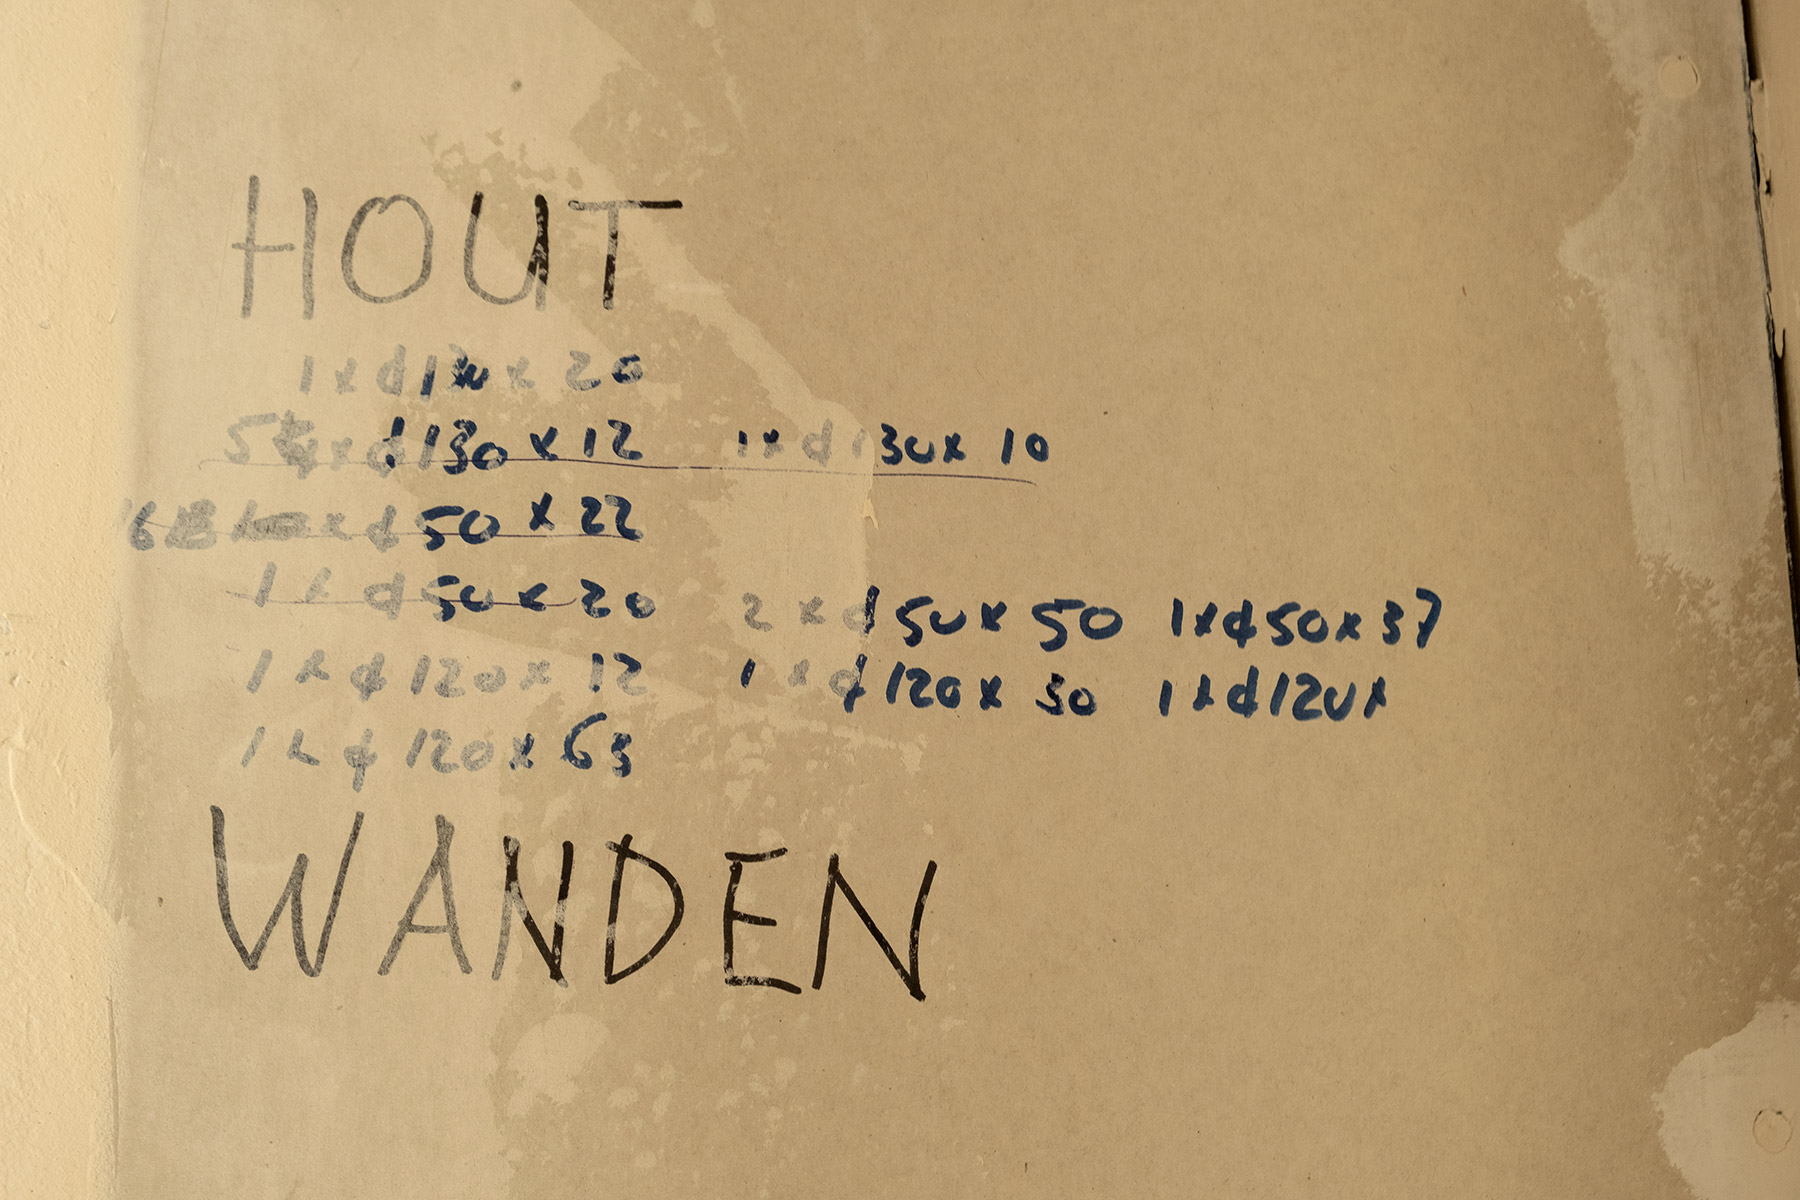 HOUT
1x d 1 x 20
x d 130 x 12 1x d 130 x 10
x d 50 x 22
1 x d 50 x 20 2 x d 50 x 50 1x d 50 x 37
1 x d 120 x 12 1 x d 120 x 30 1 x d 120 x
1 x d 120 x 63
WANDEN